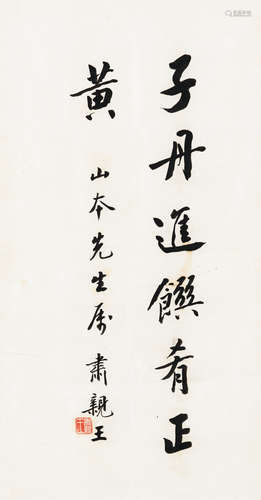 子丹進饌肴正
黃
山本先生属 肅親王